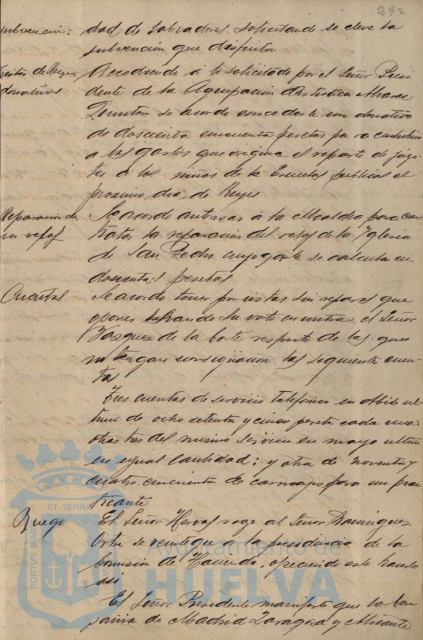 292
subvención: dad de Labradores solicitando se eleve la
subvención que disfruta
Accediendo a lo solicitado por el Señor Presi
donativos dente de la Agrupación Artística Alvarez
Quintero se acordó concederle un donativo
de doscientas cincuenta pesetas para contribuir
a los gastos que origine el reparto de jugue
tes a los niños de las Escuelas públicas el
próximo día de Reyes
Reparación de Se acordó autorizar a la Alcaldía para con
un reloj tratar la reparación del reloj de la Iglesia
de San Pedro cuyo gasto se calcula en
doscientas pesetas
Cuentas Se acordó tener por vistas sin reparos que
oponer salvando su voto en contra el Señor
Vázquez de la Corte respecto de las que
no tengan consignación las siguientes cuen
tas
Tres cuentas de servicio telefónico en Abril úl
timo de ocho setenta y cinco pesetas cada una
otras tres del mismo servicio en mayo último
en igual cantidad; y otra de noventa y
cuatro cincuenta de carruajes para un prac
ticante
Ruego El Señor ruega al Señor Domínguez
se reintegre a la presidencia de la
Comisión de Hacienda, ofreciendo este hacerlo
así
El Señor Presidente manifestó que la Com
pañía de Madrid Zaragoza y Alicante
ET·TERRÆ
PORTUS MARIS
Ayuntamiento de
HUELVA